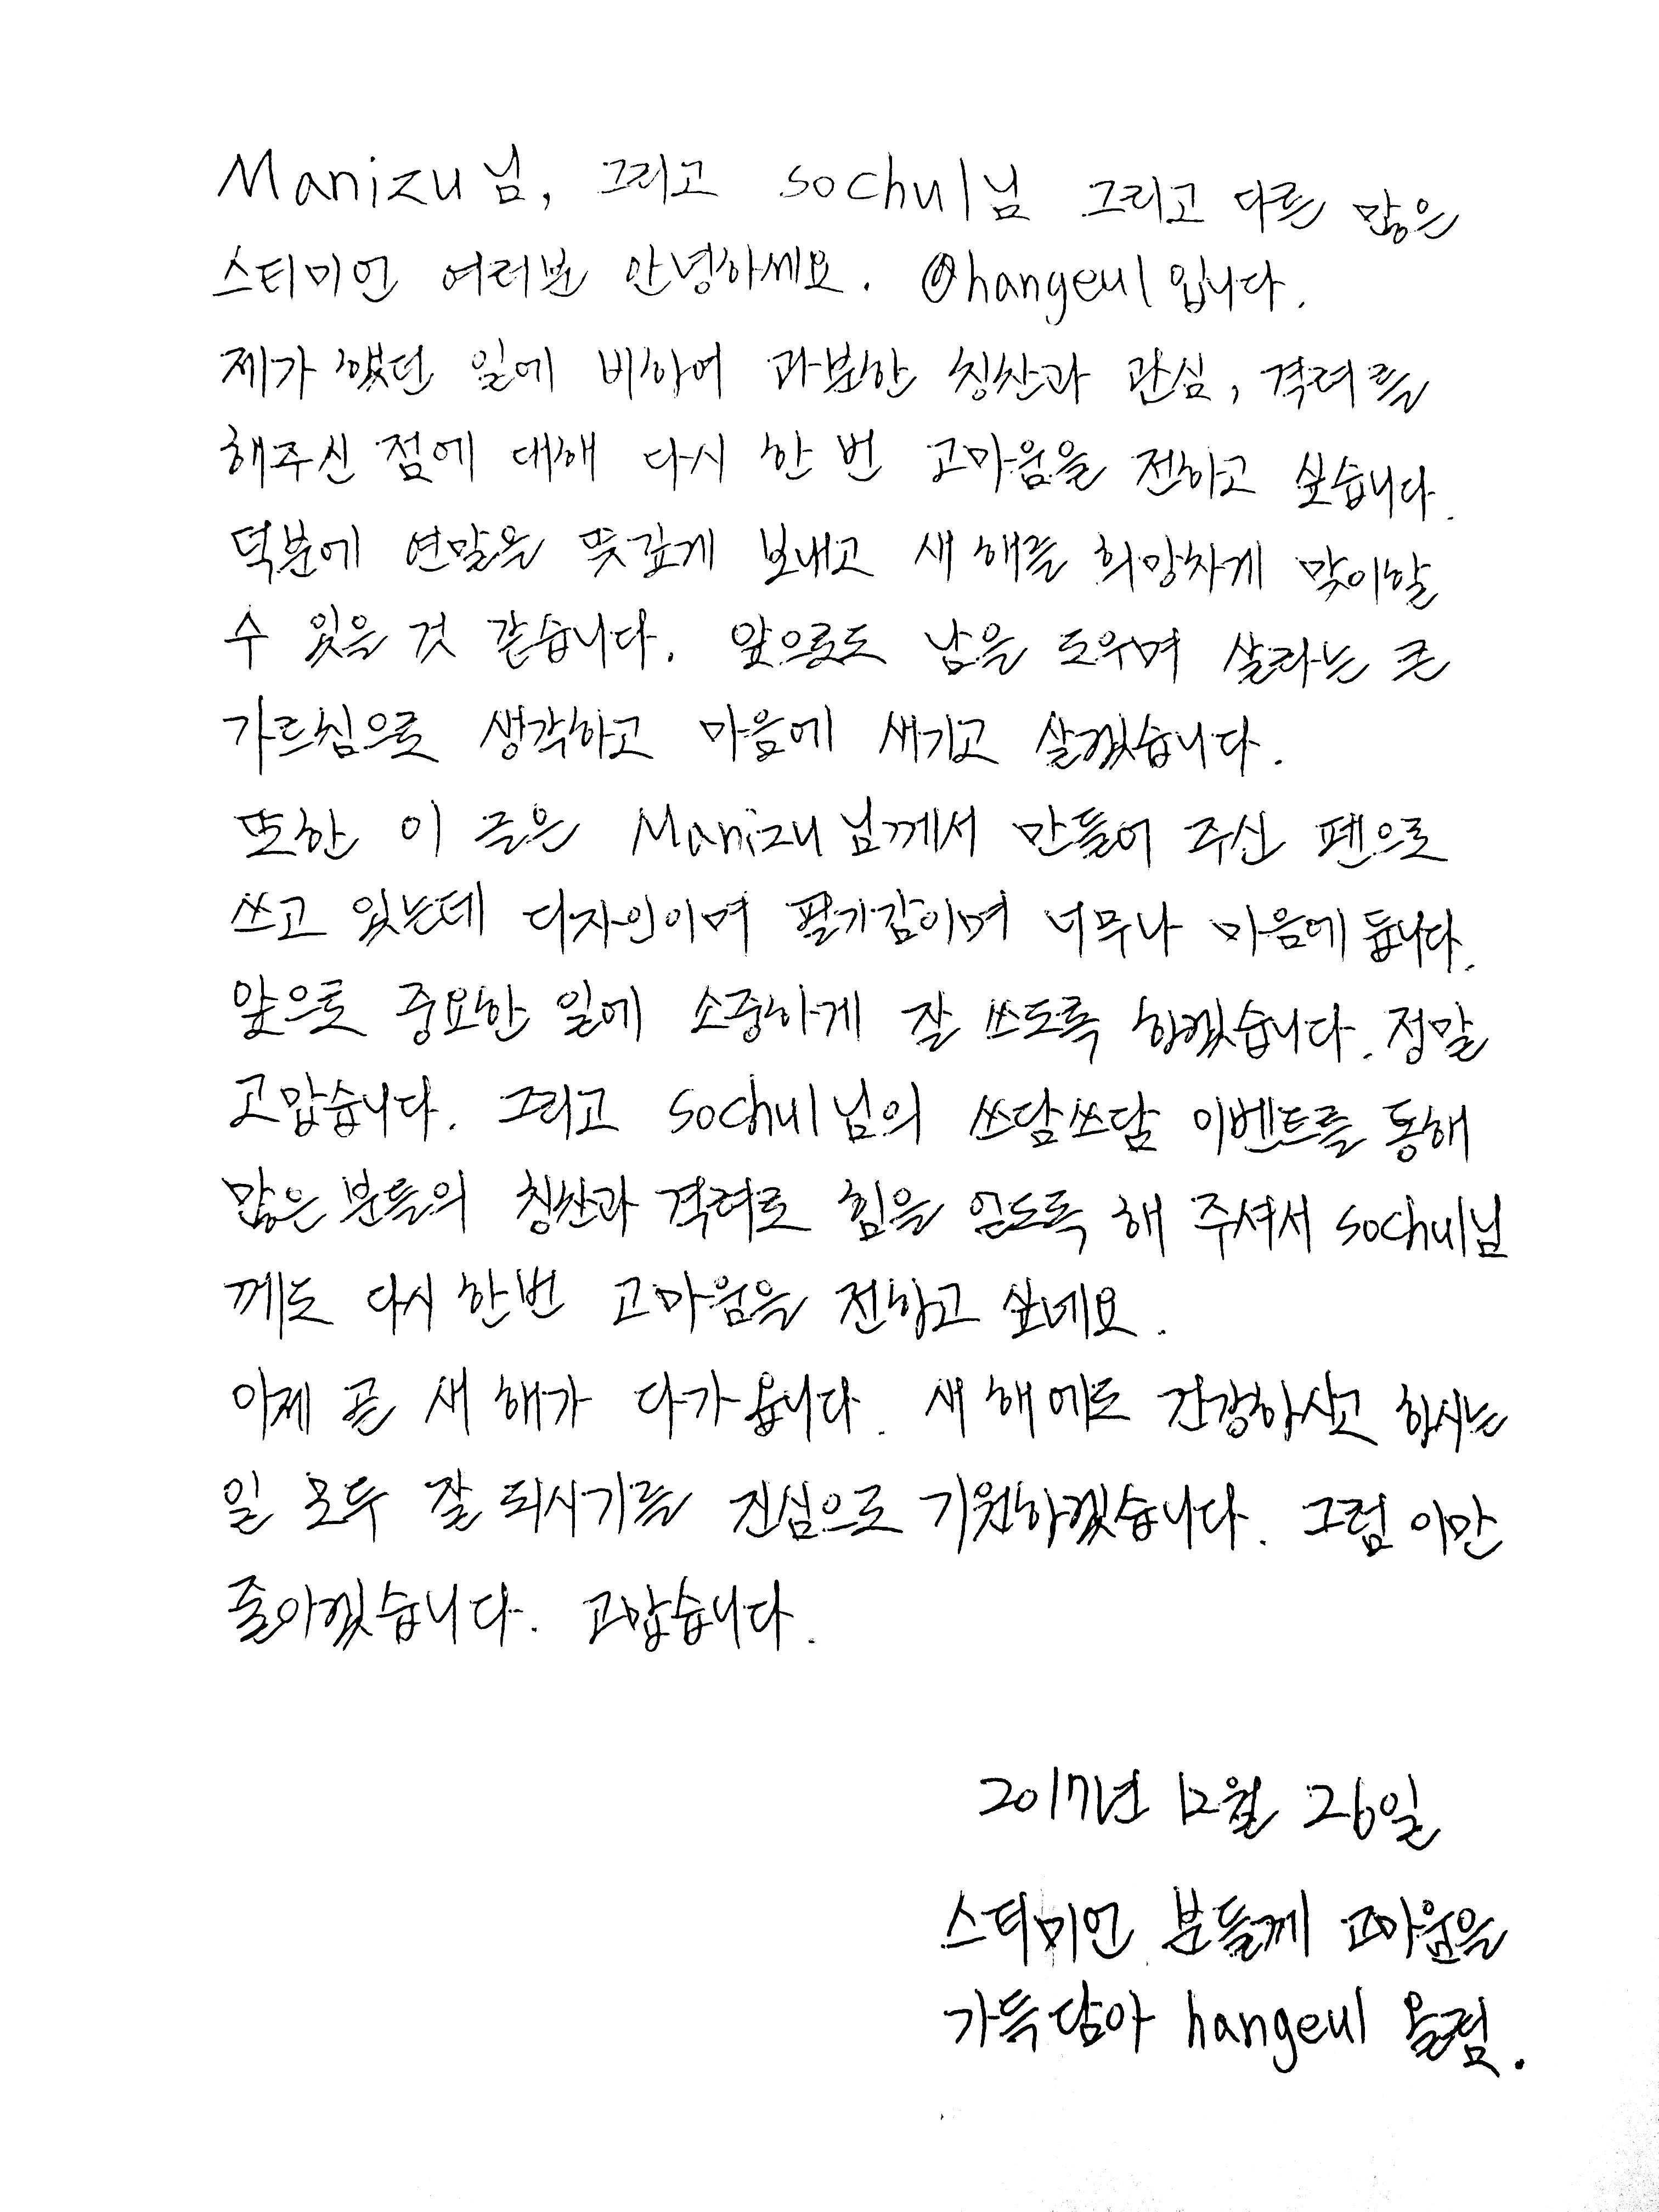 Manizu님, 그리고 sochul님 그리고 다른 많은
스티미언 여러분 안녕하세요. @hangeul입니다.
제가 했던 일에 비하여 과분한 칭찬과 관심, 격려를
해주신 점에 대해 다시 한 번 고마움을 전하고 싶습니다.
덕분에 연말을 뜻깊게 보내고 새 해를 희망차게 맞이할
수 있을 것 같습니다. 앞으로도 남을 도우며 살라는 큰
가르침으로 생각하고 마음에 새기고 살겠습니다.
또한 이 글은 Manizu님께서 만들어 주신 펜으로
쓰고 있는데 디자인이며 필기감이며 너무나 마음에 듭니다.
앞으로 중요한 일에 소중하게 잘 쓰도록 하겠습니다. 정말
고맙습니다. 그리고 sochul님의 쓰담쓰담 이벤트를 통해
많은 분들의 칭찬과 격려로 힘을 얻도록 해 주셔서 sochul님
께도 다시 한번 고마움을 전하고 싶네요.
이제 곧 새 해가 다가옵니다. 새 해에도 건강하시고 하시는
일 모두 잘 되시기를 진심으로 기원하겠습니다. 그럼 이만
줄이겠습니다. 고맙습니다.
2017년 12월 26일
스티미언 분들께 고마움을
가득 담아 hangeul 올림.